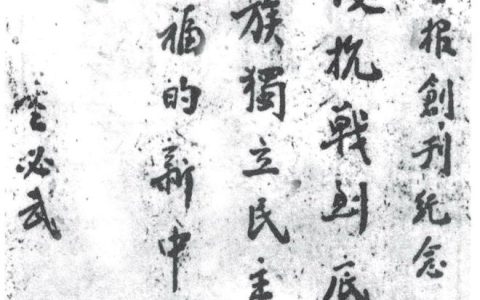 報創刊紀念
抗戰到底
族獨立民主
福的新中
董必武